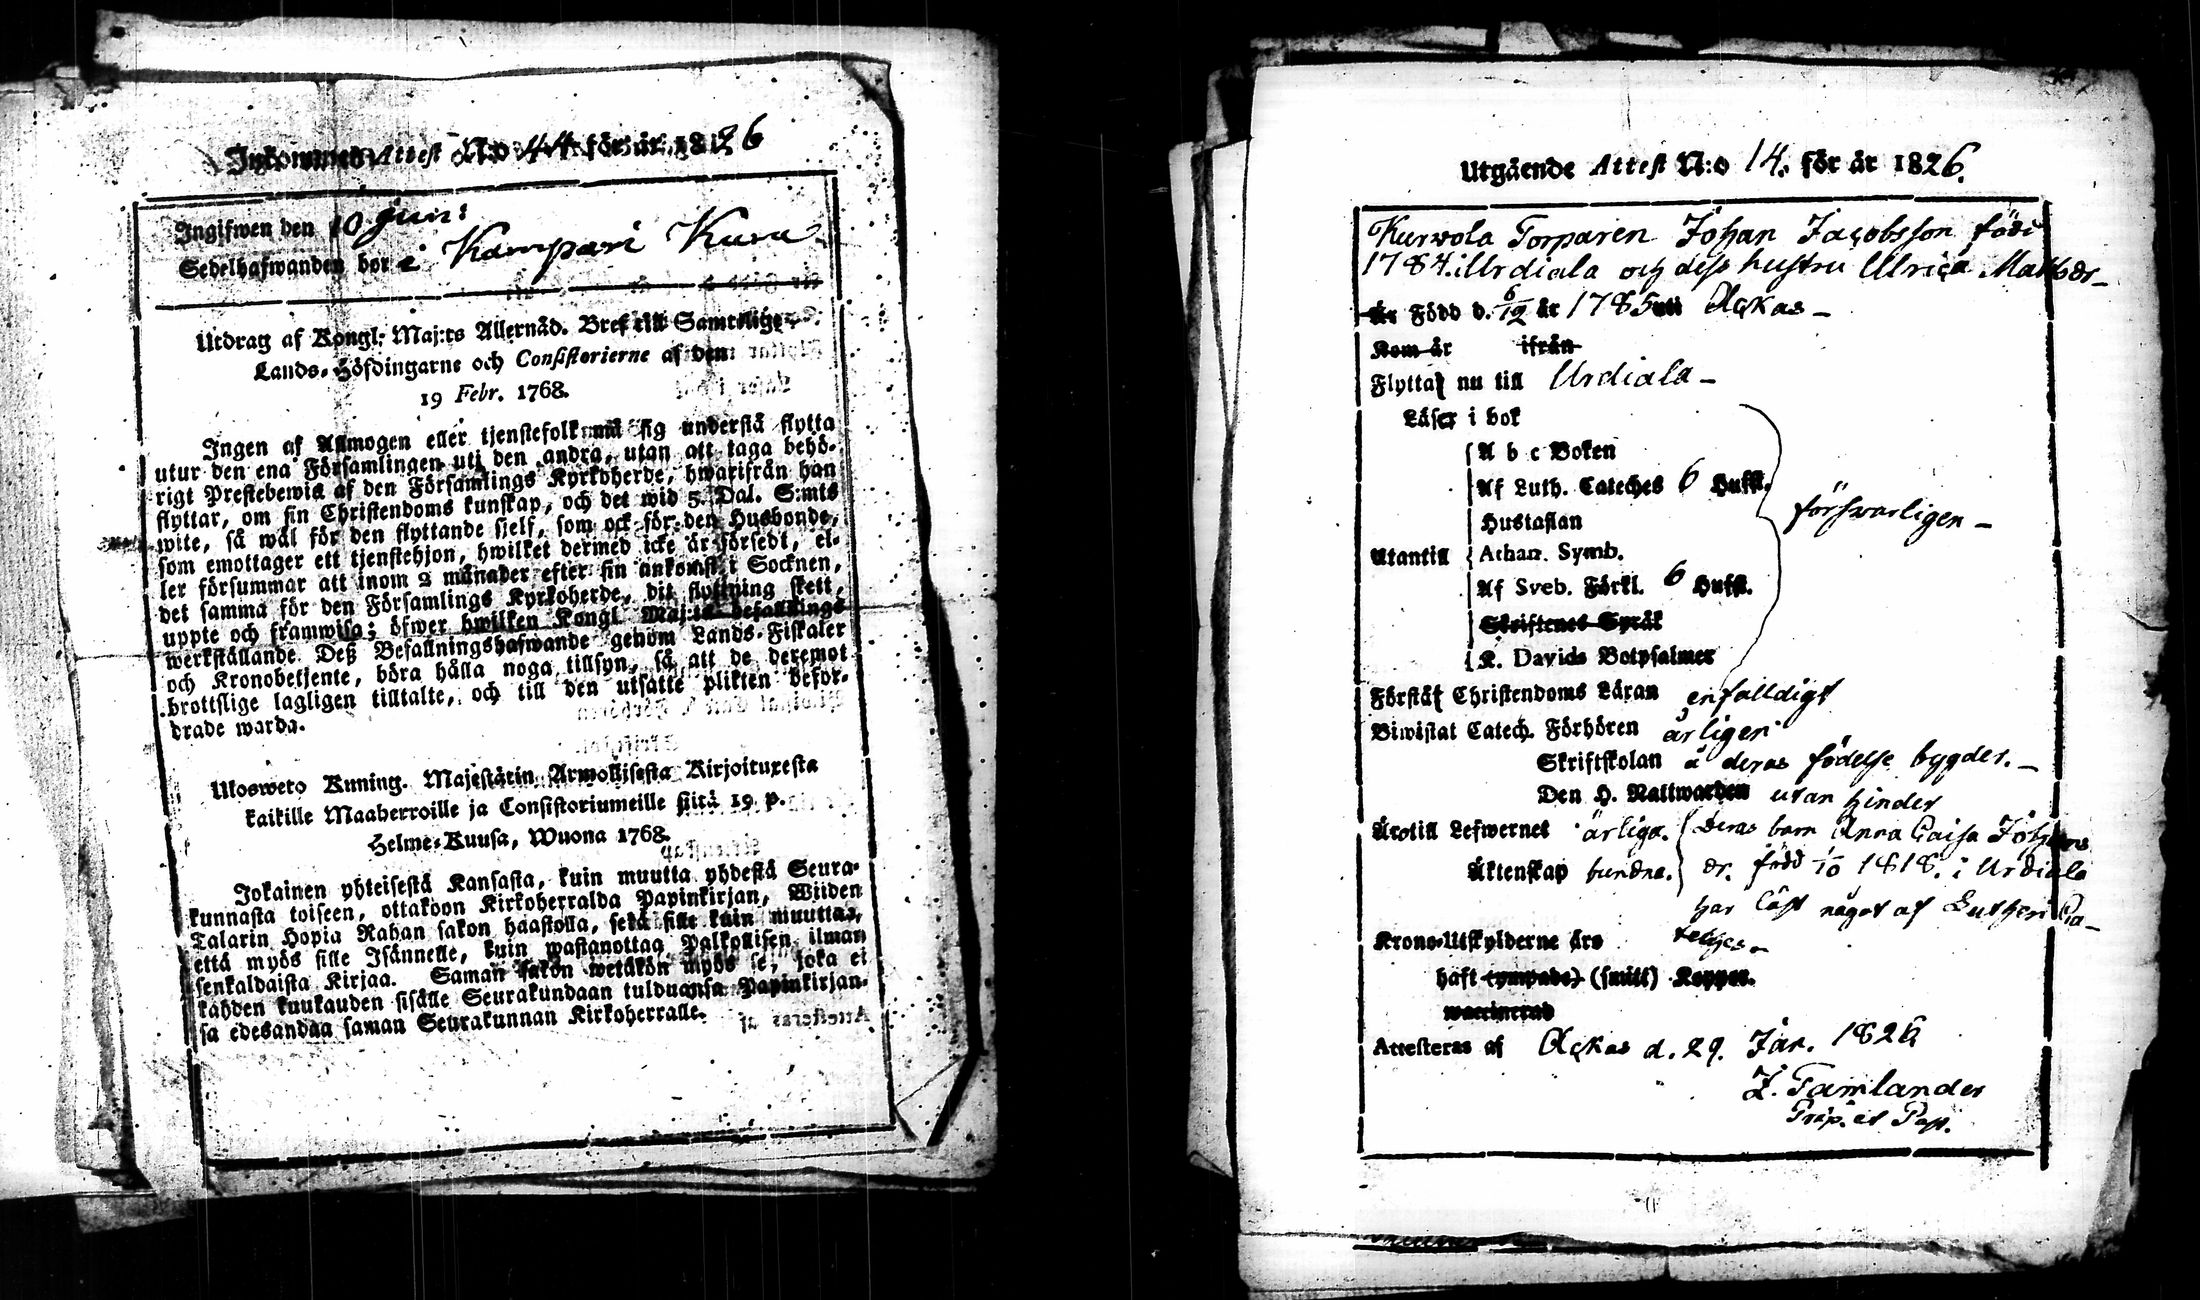 Inkommen Attest N:o 44 för år 1826
Ingifwen den 10 Juni
Sedelhafwanden bor i Kampari Kuru
Utdrag af Kongl. Maj:ts Allernåd. Bref till Samtelige
Lands-Höfdingarne och Consistorierne af den
19 Febr. 1768.
Ingen af Allmogen eller tjenstefolk må sig understå flytta
utur den ena Församlingen uti den andra, utan att taga behö-
rigt Prestebewis af den Församlings Kyrkoherde, hwarifrån han
flyttar, om sin Christendoms kunskap, och det wid 5 Dal. S:mts
wite, så wäl för den flyttande sjelf, som ock för den Husbonde,
som emottager ett tjenstehjon, hwilket dermed icke är försedt, el-
ler försummar att inom 2 månader efter sin ankomst i Socknen,
det samma för den Församlings Kyrkoherde, dit flyttning skett,
uppte och framwisa; öfwer hwilken Kongl. Maj:ts befallnings
werkställande Deß Befallningshafwande genom Lands-Fiskaler
och Kronobetjente, böra hålla noga tillsyn, så att de deremot
brottslige lagligen tilltalte, och till den utsatte plikten befor-
drade warda.
Ulosweto Kuning. Majestätin Armollisesta Kirjoituxesta
kaikille Maaherroille ja Consistoriumeille siitä 19 p.
Helme-Kuusa, Wuona 1768.
Jokainen yhteisestä Kansasta, kuin muutta yhdestä Seura-
kunnasta toiseen, ottakoon Kirkoherralda Papinkirjan, Wiiden
Talarin Hopia Rahan sakon haastolla, sekä sille kuin muuttaa,
että myös sille Isännelle, kuin wastanottaa Palkollisen ilman
senkaldaista Kirjaa. Saman sakon wetäkön myös se, joka ei
kahden kuukauden sisälle Seurakundaan tulduansa Papinkirjan-
sa edesandaa saman Seurakunnan Kirkoherralle.
Utgående Attest N:o 14. för år 1826.
Kurvola Torparen Johan Jacobsson född
1784. i Urdiala och dess hustru Ulrica Mattsdr_
Är Född d. 6/12 år 1785 uti Ackas _
Kom år ifrån
Flytta nu till Urdiala _
Läser i bok
A b c Boken
Af Luth. Cateches 6 Hufst.
Hustaflan
försvarligen _
Utantill Athan. Symb.
Af Sveb. Förkl. 6 Hufst.
Skriftenes Språk
K. Davids Botpsalmer
Förstå Christendoms Läran enfalldigt
Biwistat Catech. Förhören årligen
Skriftskolan å deras födelse bygder. _
Den H. Nattwarden utan hinder
Äro till Lefwernet ärliga. Deras barn Anna Caisa Johans
Äktenskap bundna. dr. född 1/10 1818. i Urdiala
har läst något af Lutheri Ca-
teches _
Krono-Utskylderne äro
haft (ympade) (smitt) Koppor.
waccinerad
Attesteras af Ackas d. 29. Jan. 1826
Z. Tamlander
Præp. et Past.